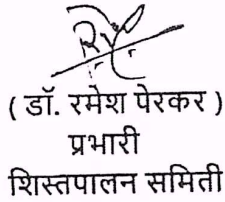 ( डॉ. रमेश पेरकर )
प्रभारी
शिस्तपालन समिती